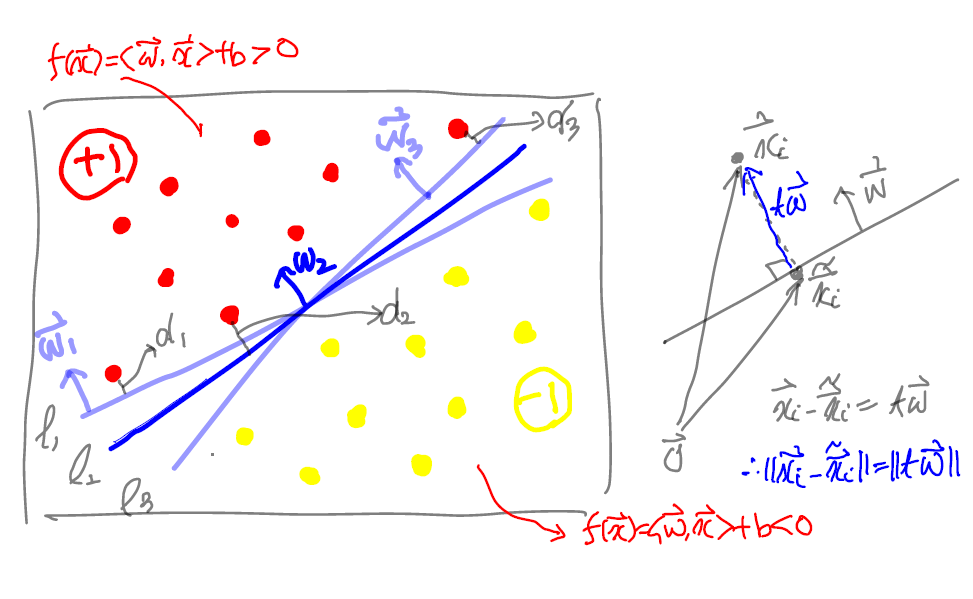 f(x⃗)=<w⃗,x⃗>+b>0
+1
w⃗₃
d₃
w₂
d₂
w⃗₁
d₁
l₁
l₂
l₃
-1
f(x⃗)=<w⃗,x⃗>+b<0
x⃗ᵢ
tw⃗
w⃗
x̃ᵢ
0⃗
x⃗ᵢ-x̃⃗ᵢ=tw⃗
∴||x⃗ᵢ-x̃⃗ᵢ||=||tw⃗||